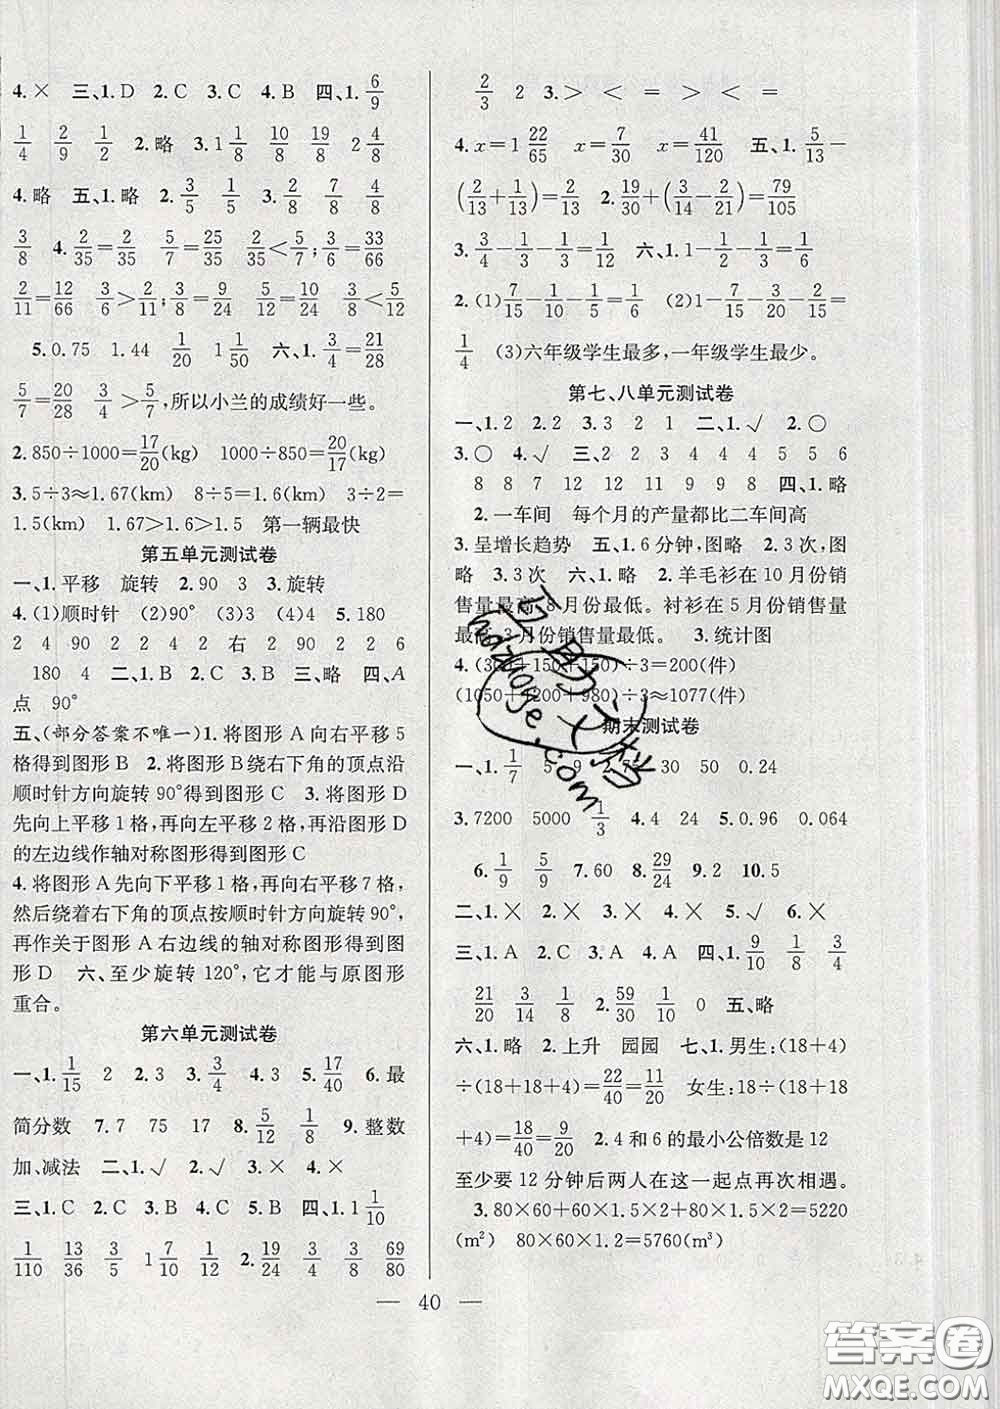 4.× 三、1.D 2.C 3.C 4.B 四、1.6/9
1/4 2/9 1/2 2.略 3.1 1/8 10/8 19/8 2 4/8
4.略 五、1.略 2.3/5 1/5 3.2/8 7/8 4/8
3/8 4.2/35=2/35 5/7=25/35 2/35<5/7;3/6=33/66
2/11=12/66 3/6>2/11;3/8=9/24 5/12=10/24 3/8<5/12
5.0.75 1.44 1/20 1 1/50 六、1.3/4=21/28
5/7=20/28 3/4>5/7,所以小兰的成绩好一些。
2.850÷1000=17/20(kg) 1000÷850=20/17(kg)
3.5÷3≈1.67(km) 8÷5=1.6(km) 3÷2=
1.5(km) 1.67>1.6>1.5 第一辆最快
第五单元测试卷
一、1.平移 旋转 2.90 3 3.旋转
4.(1)顺时针 (2)90° (3)3 (4)4 5.180
2 4 90 2 2 4 2 右 90 2 2 6
180 4 二、1.B 2.B 3.B 三、略 四、A
点 90°
五、(部分答案不唯一)1.将图形 A 向右平移 5
格得到图形 B 2.将图形 B 绕右下角的顶点沿
顺时针方向旋转 90°得到图形 C 3.将图形 D
先向上平移 1 格,再向左平移 2 格,再沿图形 D
的左边线作轴对称图形得到图形 C
4.将图形 A 先向下平移 1 格,再向右平移 7 格,
然后绕着右下角的顶点按顺时针方向旋转 90°,
再作关于图形 A 右边线的轴对称图形得到图
形 D 六、至少旋转 120°,它才能与原图形
重合。
第六单元测试卷
一、1.1/15 2 2.3 3.3/4 4.3 5.17/40 6.最
简分数 7.7 75 17 8.5/12 1/8 9.整数
加、减法 二、1.√ 2.√ 3.× 4.×
三、1.C 2.C 3.B 4.C 5.B 四、1.1 1/10
1/110 13/36 3/5 1 7/10 1/12 2.19/24 3/34 3/8 69/80
2/3 2 3.> < = > < =
4.x=1 22/65 x=7/30 x=41/120 五、1.5/13-
(2/13+1/13)=2/13 2.19/30+(3/14-2/21)=79/105
3.3/4-1/3-1/3=1/12 六、1.1-1/2-1/3=1/6
2.(1)7/15-1/10-1/5=1/6 (2)1-7/15-3/20-2/15=
1/4 (3)六年级学生最多,一年级学生最少。
第七、八单元测试卷
一、1.2 2.2 3.2 1 2 二、1.√ 2.○
3.○ 4.√ 三、2 2 3 2 4 2 5 5 6
8 8 7 12 12 11 9 8 7 四、1.略
2.一车间 每个月的产量都比二车间高
3.呈增长趋势 五、1.6 分钟,图略 2.3 次,图
略 3.3 次 六、1.略 2.羊毛衫在 10 月份销
售量最高,8 月份最低。衬衫在 5 月份销售量
最高,3 月份销售量最低。 3.统计图
4.(300+150+150)÷3=200(件)
(1050+1200+980)÷3≈1077(件)
期末测试卷
一、1.1/7 5 9 2.75 30 50 0.24
3.7200 5000 1/3 4.4 24 5.0.96 0.064
6.1/9 5/9 7.60 8.29/24 9.2 10.5
二、1.× 2.× 3.× 4.× 5.√ 6.×
三、1.A 2.C 3.A 4.A 四、1.9/10 1/8 3/4
21/20 3/14 8/9 2.59/30 1/10 0 五、略
六、1.略 2.上升 园园 七、1.男生:(18+4)
÷(18+18+4)=22/40=11/20 女生:18÷(18+18
+4)=18/40=9/20 2.4 和 6 的最小公倍数是 12
至少要 12 分钟后两人在这一起点再次相遇。
3.80×60+60×1.5×2+80×1.5×2=5220
(m²) 80×60×1.2=5760(m³)
— 40 —
hdzuoye.com
答案圈
MXQE.COM